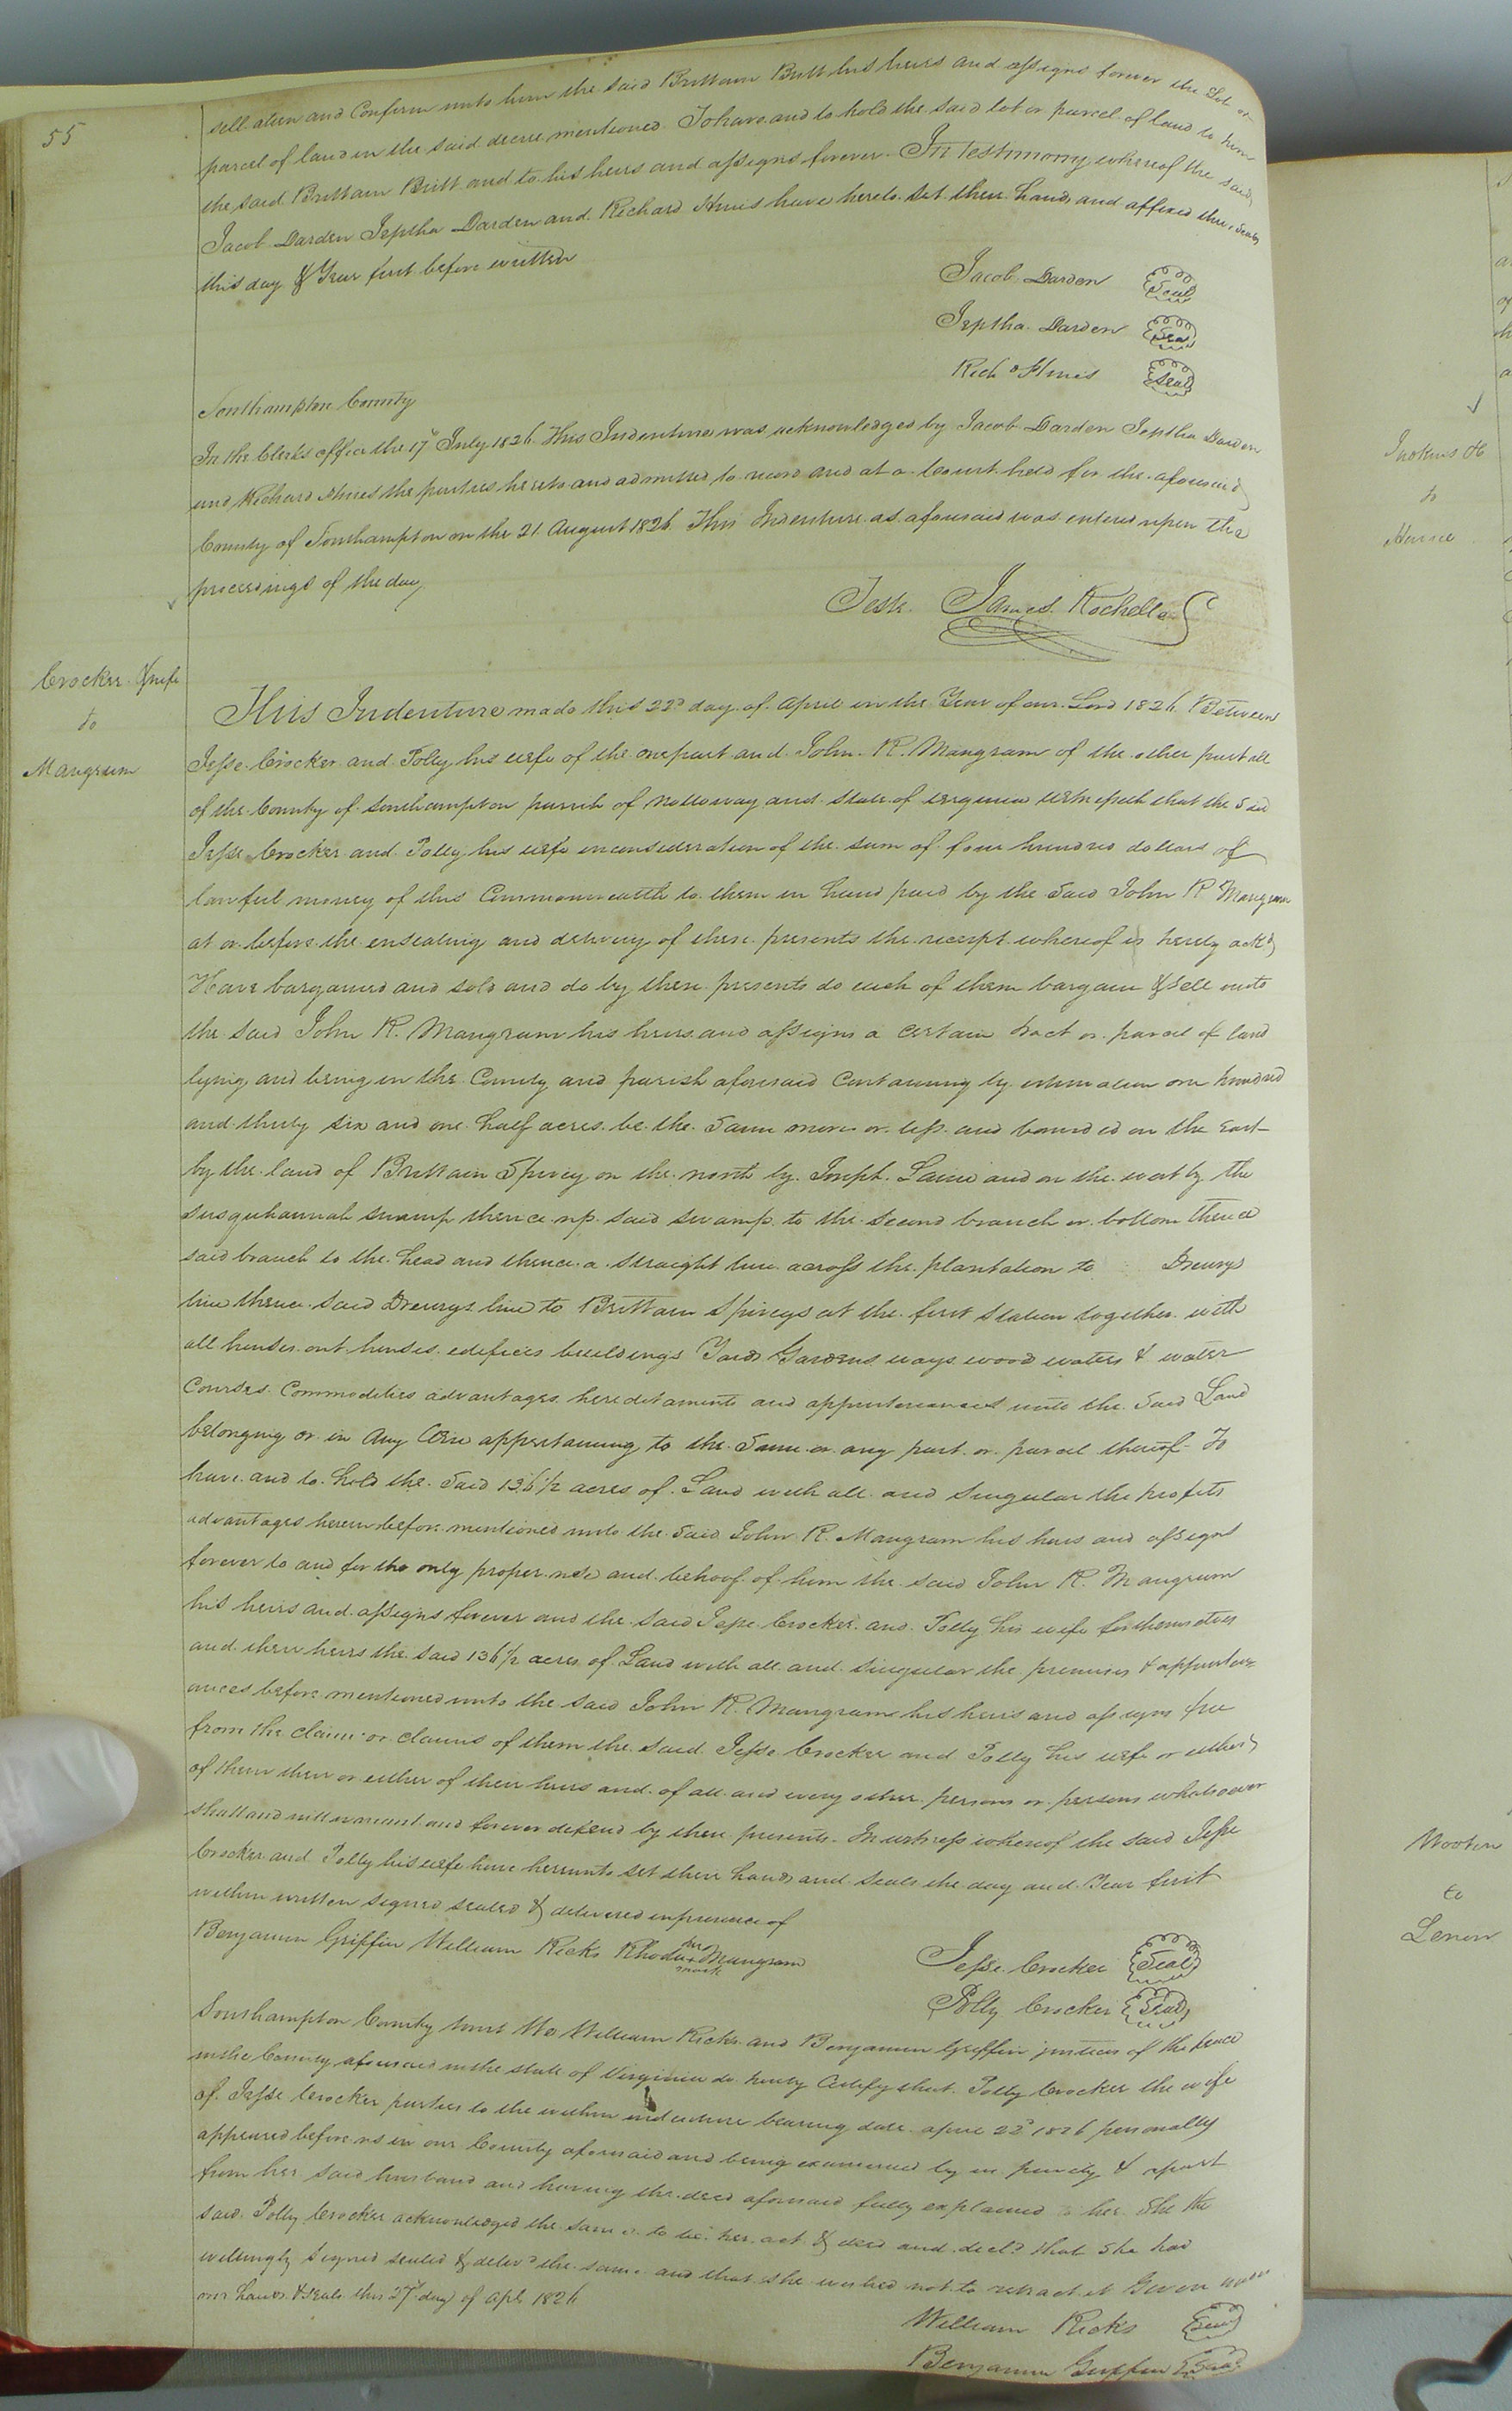 55
sell alien and Confirm unto him the said Brittain Britt his heirs and assigns forever the Lot or
parcel of land in the said decree mentioned To have and to hold the said lot or parcel of land to him
the said Brittain Britt and to his heirs and assigns forever. In Testimony whereof the said
Jacob Darden Jeptha Darden and Richard Hines have hereto set their hands and affixed their seals
this day & Year first before written
Jacob Darden Seal
Jeptha Darden Seal
Richd Hines Seal
Southampton County
In the Clerks office the 17th July 1826 This Indenture was acknowledged by Jacob Darden Jeptha Darden
and Richard Hines the parties hereto and admitted to record and at a Court held for the aforesaid
County of Southampton on the 21 August 1826 This Indenture as aforesaid was entered upon the
proceedings of the day
Teste James Rochelle C
Crocker & wife
to
Mangram
This Indenture made this 22d day of April in the Year of our Lord 1826 Between
Jesse Crocker and Polly his wife of the one part and John R. Mangram of the other part all
of the County of Southampton parrish of Nottoway and State of Virginia Witnesseth that the said
Jesse Crocker and Polly his wife in consideration of the sum of four hundred dollars of
lawful money of this Commonwealth to them in hand paid by the said John R Mangram
at or before the ensealing and delivery of these presents the receipt whereof is hereby ackd
Have bargained and sold and do by these presents do each of them bargain & sell unto
the said John R. Mangram his heirs and assigns a certain tract or parcel of land
lying and being in the County and parish aforesaid Containing by estimation one hundred
and thirty six and one half acres be the same more or less and bounded on the East
by the land of Brittain Spivey on the north by Joseph Laine and on the west by the
Susquehannah swamp thence up said swamp to the second branch or bottom thence
said branch to the head and thence a straight line across the plantation to Drewrys
line thence said Drewrys line to Brittain Spiveys at the first station together with
all houses out houses edifices buildings Yards Gardens ways wood waters & water
Courses Commodities advantages hereditaments and appurtenances unto the said Land
belonging or in any Wise appertaining to the same or any part or parcel thereof To
have and to hold the said 136 1/2 acres of Land with all and singular the profits
advantages herein before mentioned unto the said John R. Mangram his heirs and assigns
forever to and for the only proper use and behoof of him the said John R. Mangrum
his heirs and assigns forever and the said Jesse Crocker and Polly his wife for themselves
and their heirs the said 136 1/2 acres of Land with all and singular the premises & appurten
ances before mentioned unto the said John R. Mangram his heirs and assigns free
from the claim or claims of them the said Jesse Crocker and Polly his wife or either
of them their or either of their heirs and of all and every other persons or persons whatsoever
shall and will warrant and forever defend by these presents. In witness whereof the said Jesse
Crocker and Polly his wife have hereunto set their hands and seals the day and Year first
within written signed sealed & delivered in presence of
Benjamin Griffin William Ricks Rhoda her + mark Mangram
Jesse Crocker Seal
Polly Crocker Seal
Southampton County towit We William Ricks and Benjamin Griffin justices of the peace
in the County aforesaid in the state of Virginia do hereby Certify that Polly Crocker the wife
of Jesse Crocker parties to the within indenture bearing date april 22d 1826 personally
appeared before us in our County aforesaid and being examined by us privily & apart
from her said husband and having the deed aforesaid fully explained to her She the
said Polly Crocker acknowledged the same to be her act & deed and decld that she had
willingly signed sealed & delivd the same and that she wished not to retract it Given under
our hands & seals this 27th day of Apl 1826
William Ricks Seal
Benjamin Griffin Seal
to
Wooten
to